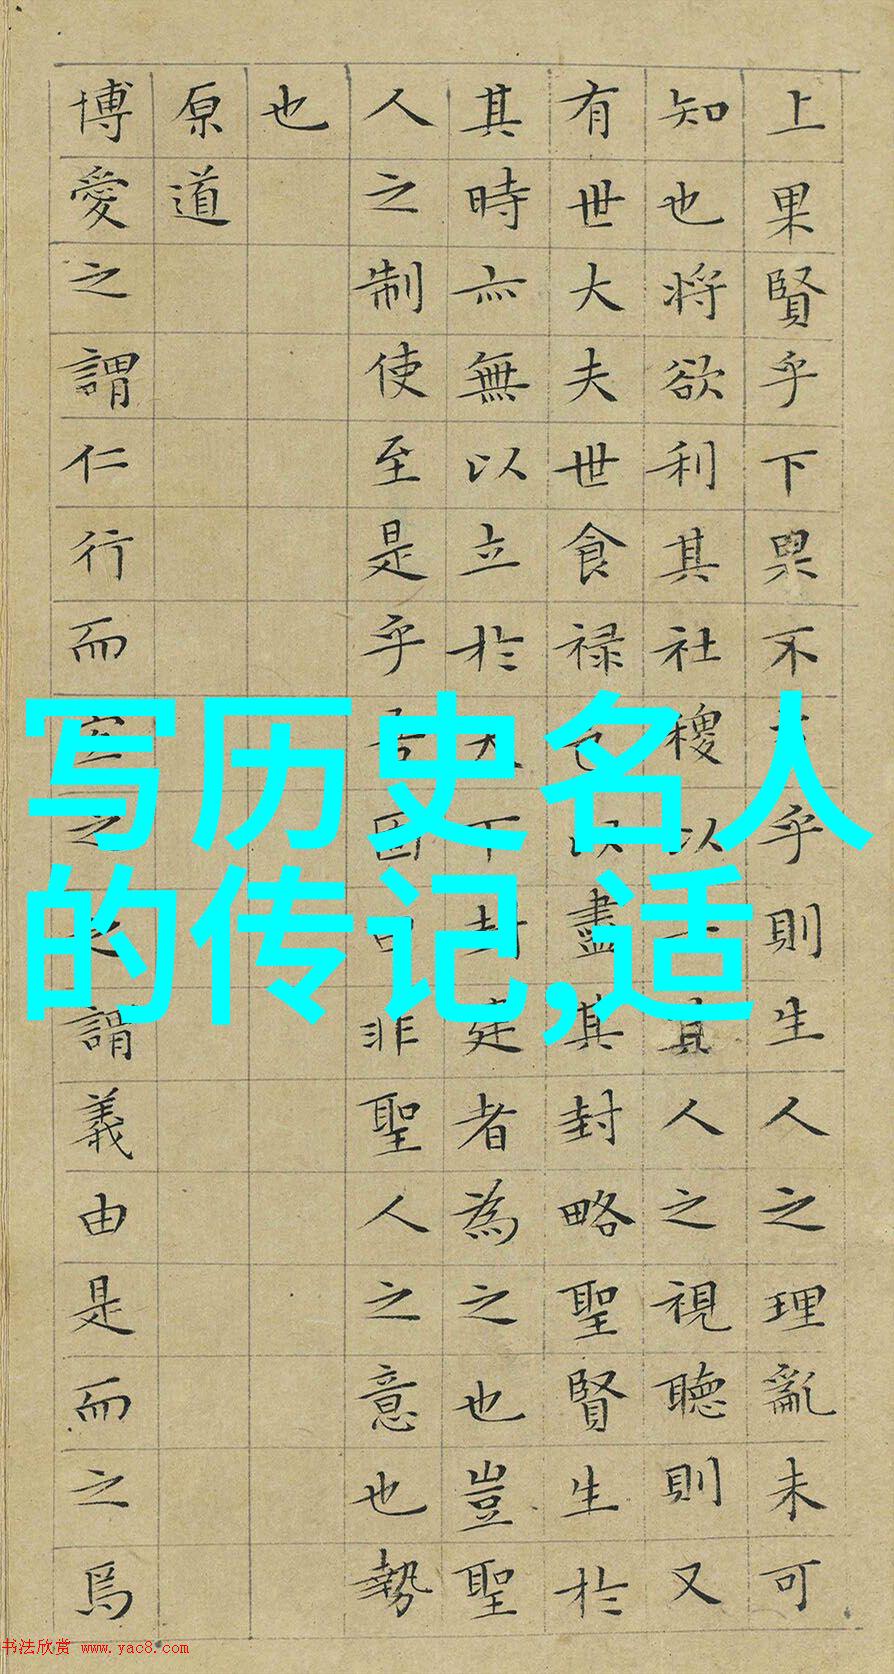 写历史名人
的传记,适
上果賢乎下果不乎則生人之理亂未可
知也將欲利其社稷以一其人之視聽則又
有世大夫世食禄邑以盡其封略聖賢生於
其時亦無以立於天下封建者為之也豈聖
人之制使至是乎吾固曰非聖人之意也勢
也
原道
博愛之謂仁行而宜之之謂義由是而之焉
书法欣赏 www.yac8.com